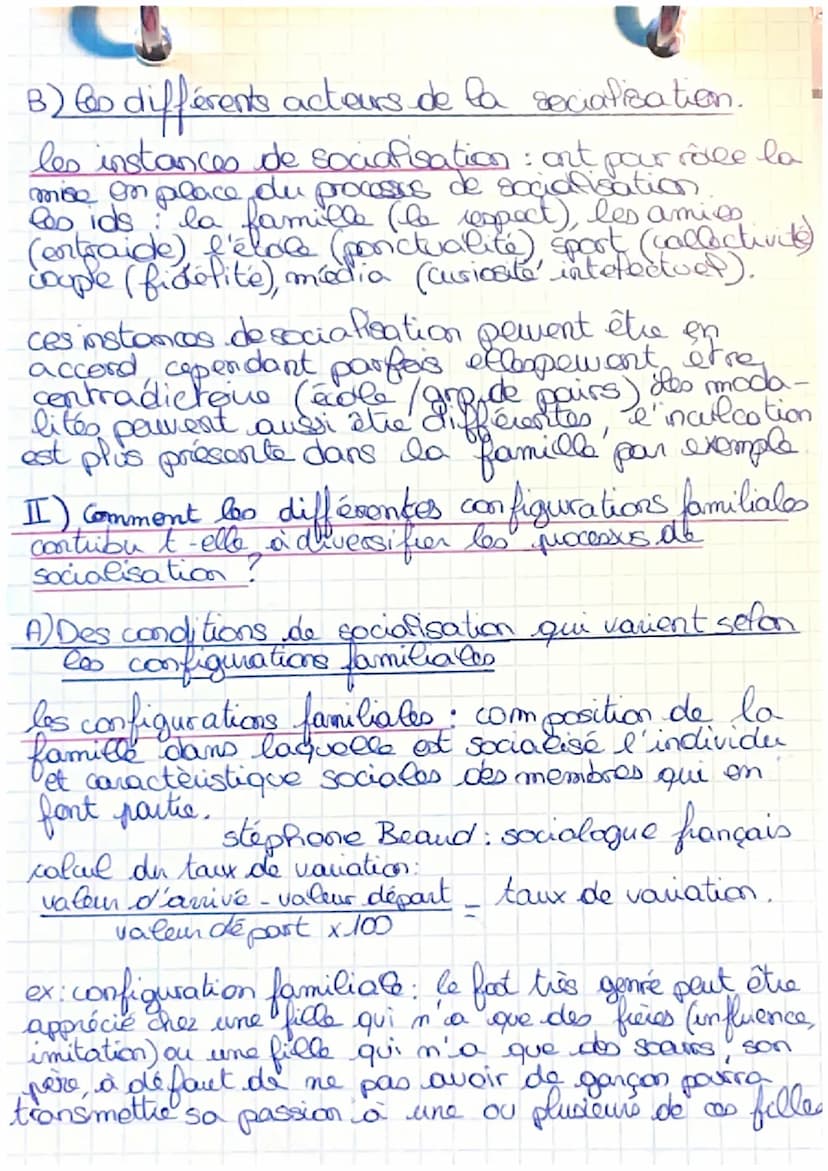 B) Les différents acteurs de la socialisation.
les instances de socialisation : ont pour rôle la
mise en place du procesus de socialisation.
les ids : la famille (le respect), les amies
(entraide) l'école (ponctualité) sport (collectivité)
couple (fidélité), média (curiosité intelectuel).
ces instances de socialisation peuvent être en
accord cependant parfois elles peuvent etre
contradictoire (école / grp de pairs) les moda-
lités peuvent aussi être différentes, l'inculcation
est plus présente dans la famille par exemple
II) Comment les différentes configurations familiales
contribu t-elle à diversifier les procesus de
socialisation ?
A) Des conditions de socialisation qui varient selon
les configurations familiales
les configurations familiales : composition de la
famille dans laquelle est socialisé l'individu
et caractéristique sociales des membres qui en
font partie.
stéphane Beaud : sociologue français
calcul du taux de variation :
valeur d'arrivé - valeur départ = taux de variation.
valeur départ x 100
ex : configuration familiale : le foot très genré peut être
apprécié chez une fille qui n'a que des frères (influence,
imitation) ou une fille qui n'a que des sœurs, son
père, à défaut de ne pas avoir de garçon pourra
transmettre sa passion à une ou plusieurs de ces filles